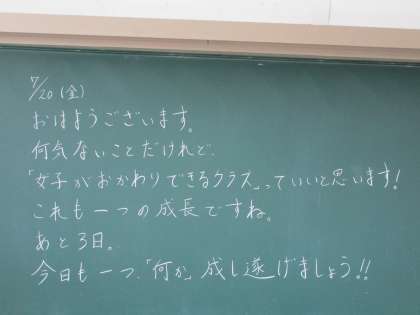 7/20(金)
おはようございます。
何気ないことだけれど、
「女子がおかわりできるクラス」っていいと思います!
これも一つの成長ですね。
あと3日。
今日も一つ、「何か」成し遂げましょう!!